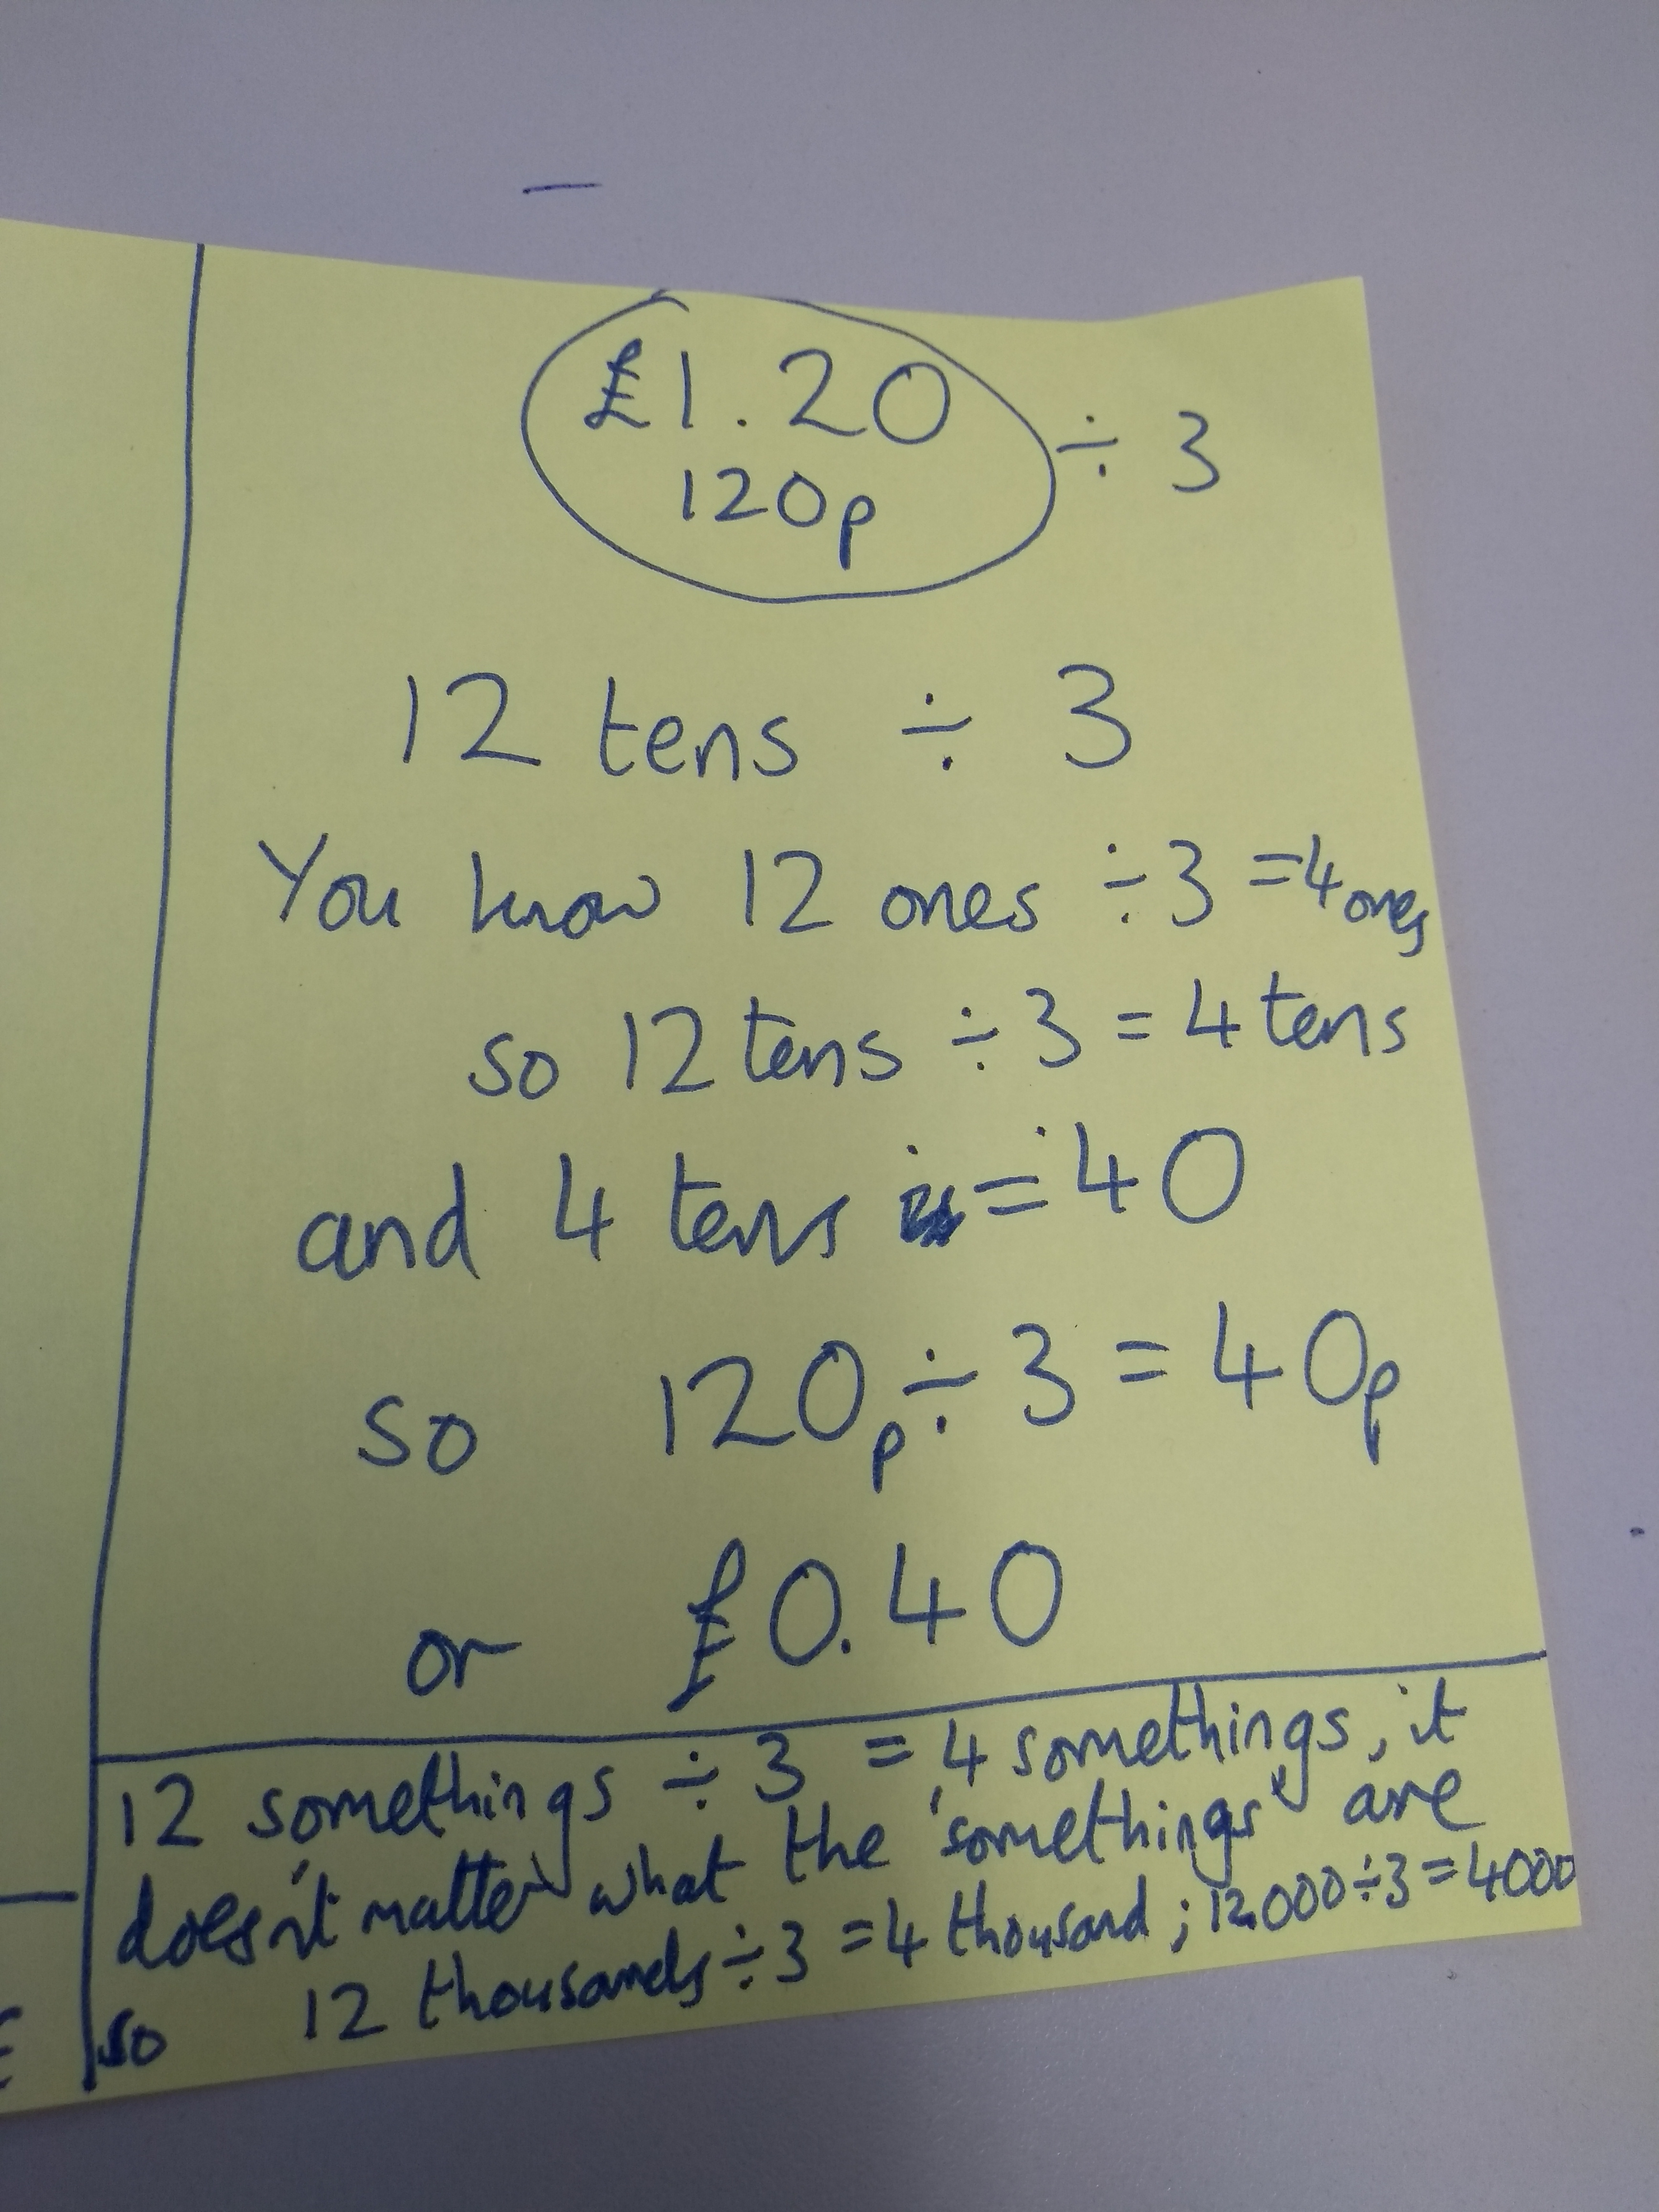 £1.20
120p
÷ 3
12 tens ÷ 3
You know 12 ones ÷3 =4 ones
so 12 tens ÷ 3 = 4 tens
and 4 tens = 40
so 120p ÷ 3 = 40p
or £0.40
12 somethings ÷ 3 = 4 somethings, it
doesn't matter what the 'somethings' are
so 12 thousands ÷ 3 = 4 thousand ; 12,000 ÷ 3 = 4000